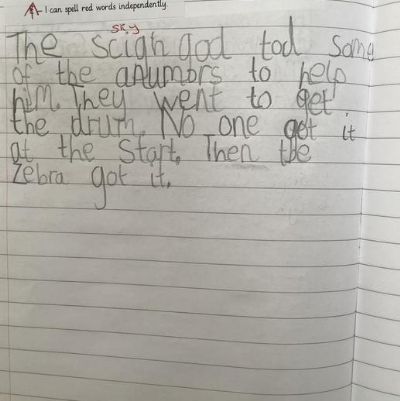 A - I can spell red words independently.
sky
The scigh god tod some
of the anumors to help
him. They went to get
the drum. No one get it
at the Start. Then the
Zebra got it.